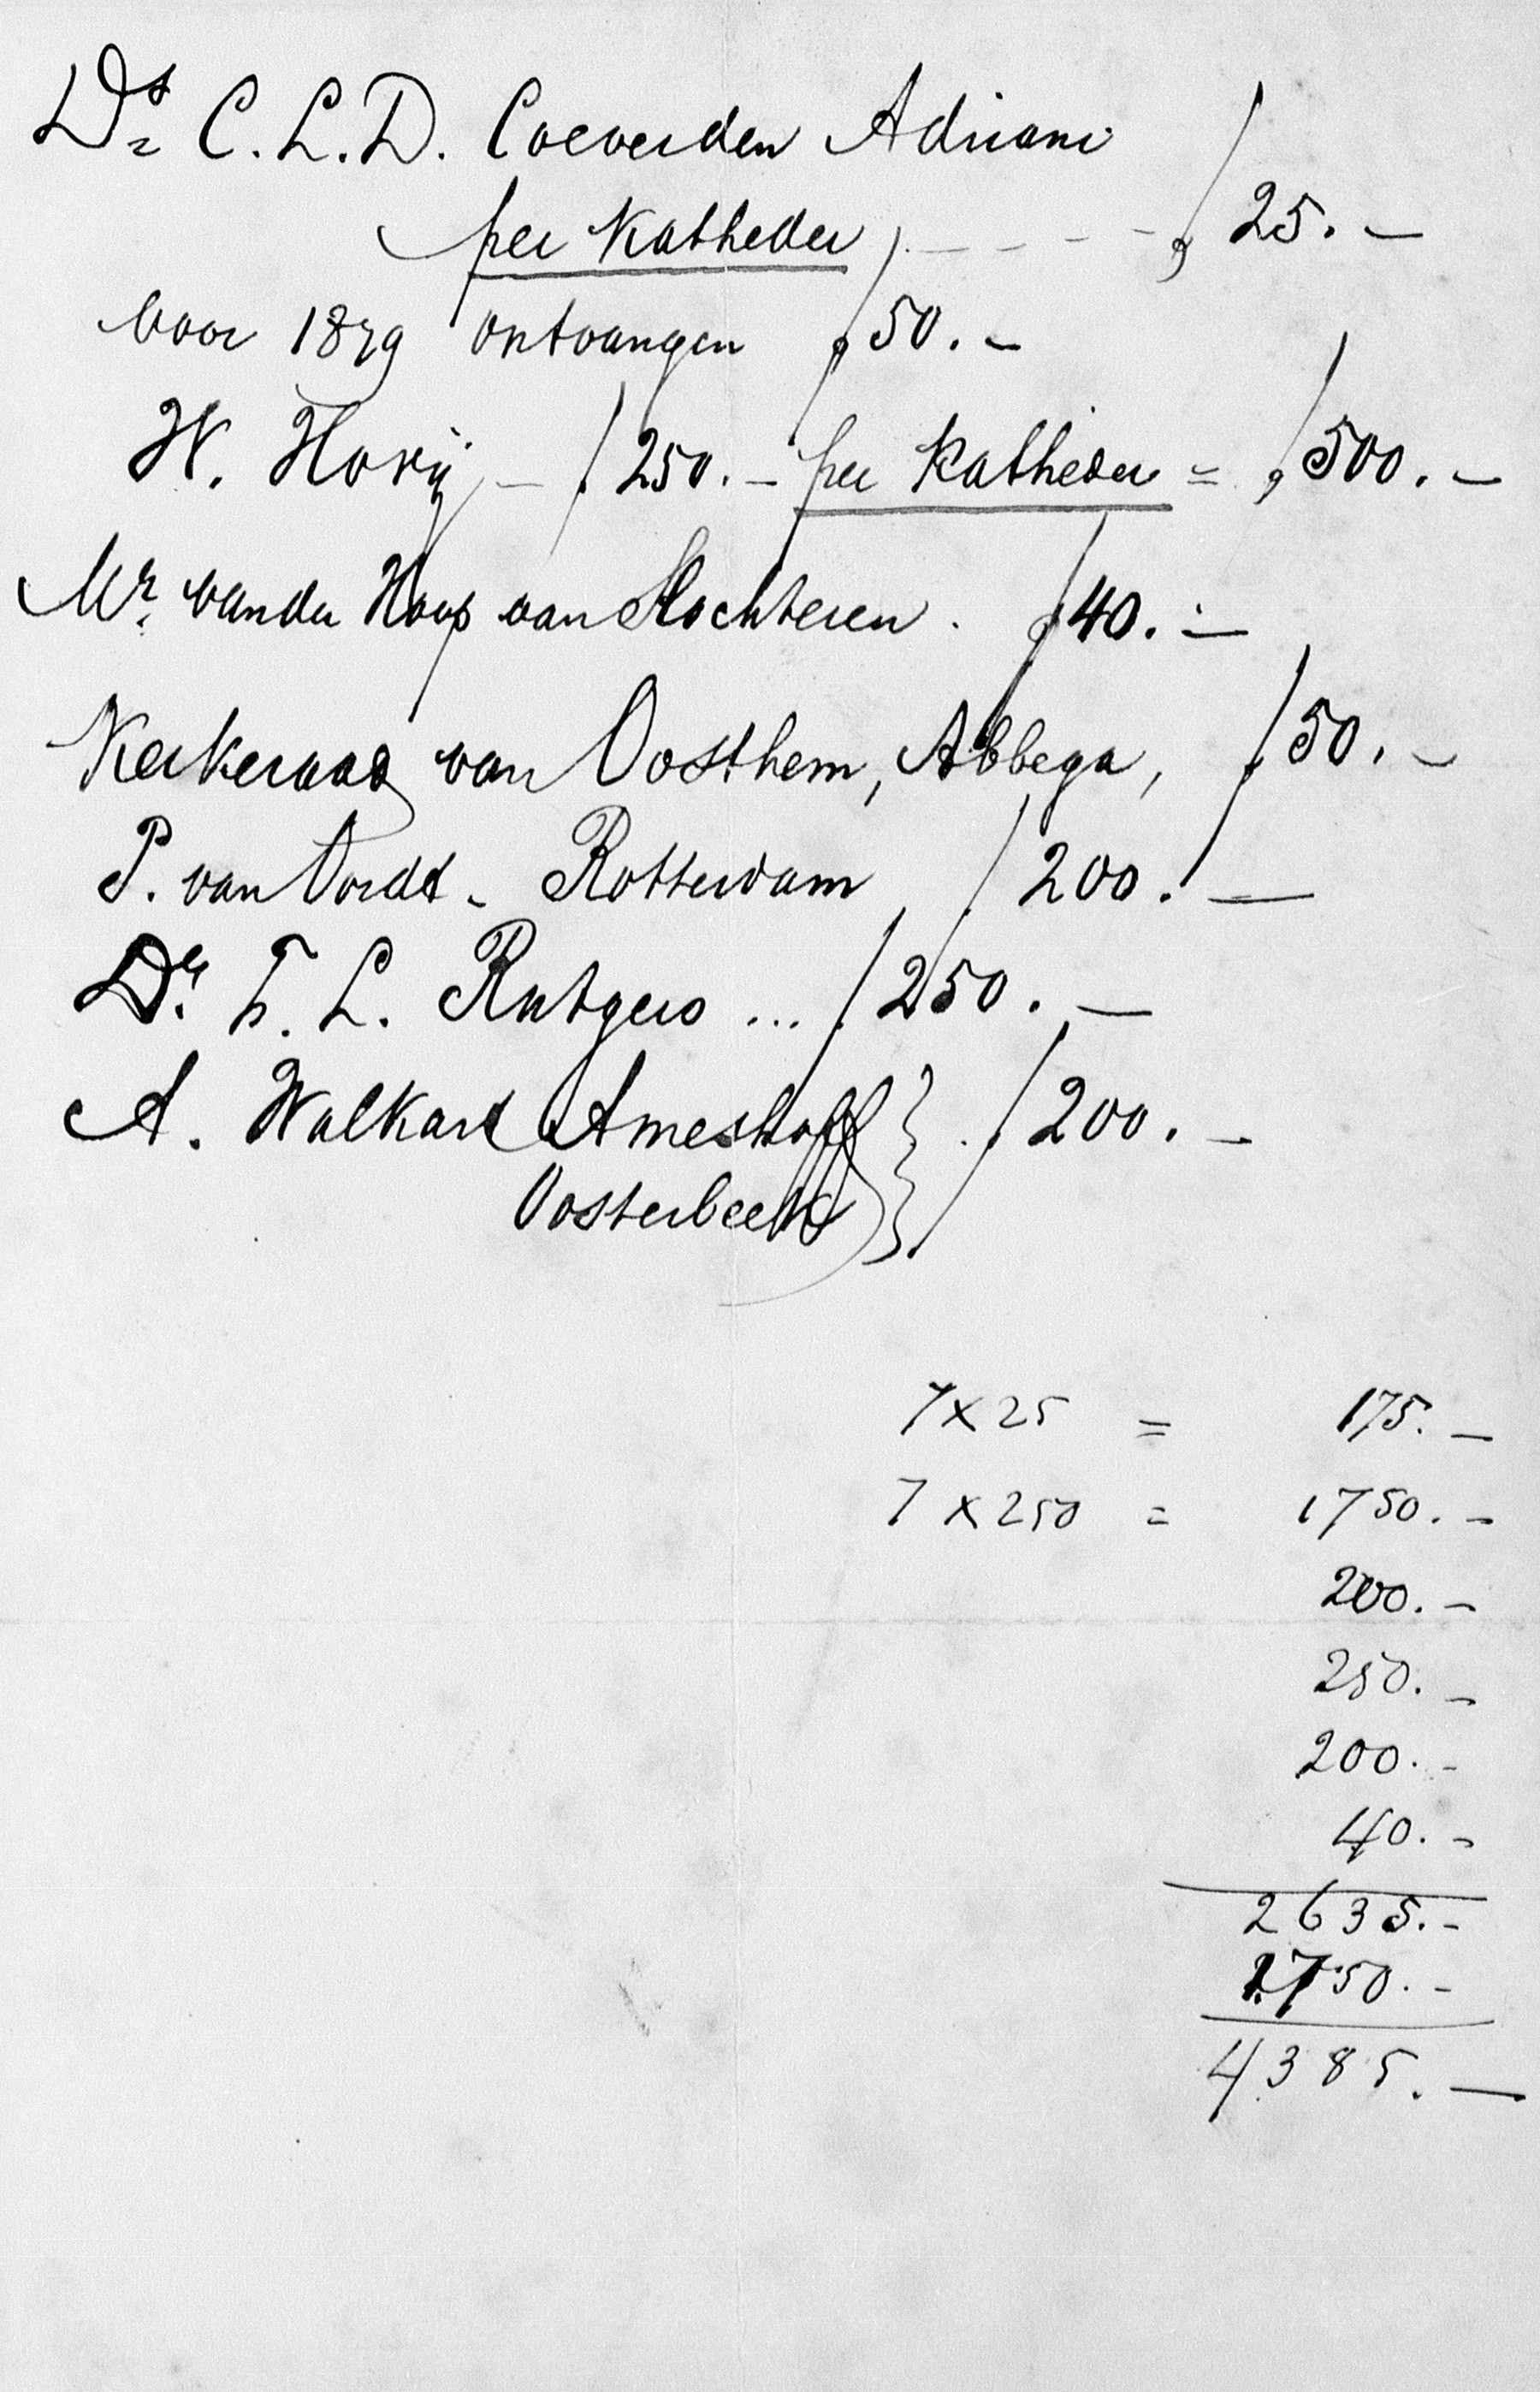 Ds C. L. D. Coeverden Adriani
per Katheder, - - - - ƒ 25. —
voor 1879 ontvangen ƒ 50. —
W. Hovij — ƒ 250. — per Katheder = ƒ 500. —
Mr. van der Hoop van Slochteren . ƒ 40. —
Kerkeraad van Oosthem, Abbega, ƒ 50. —
P. van Oordt - Rotterdam ƒ 200. —
Dr. F. L. Rutgers ... ƒ 250. —
A. Walkart Ameshoff } . ƒ 200. —
Oosterbeek
7 x 25 = 175. —
7 x 250 = 1750. —
200. —
250. —
200. -
40. -
2635. -
1750. -
4385. —